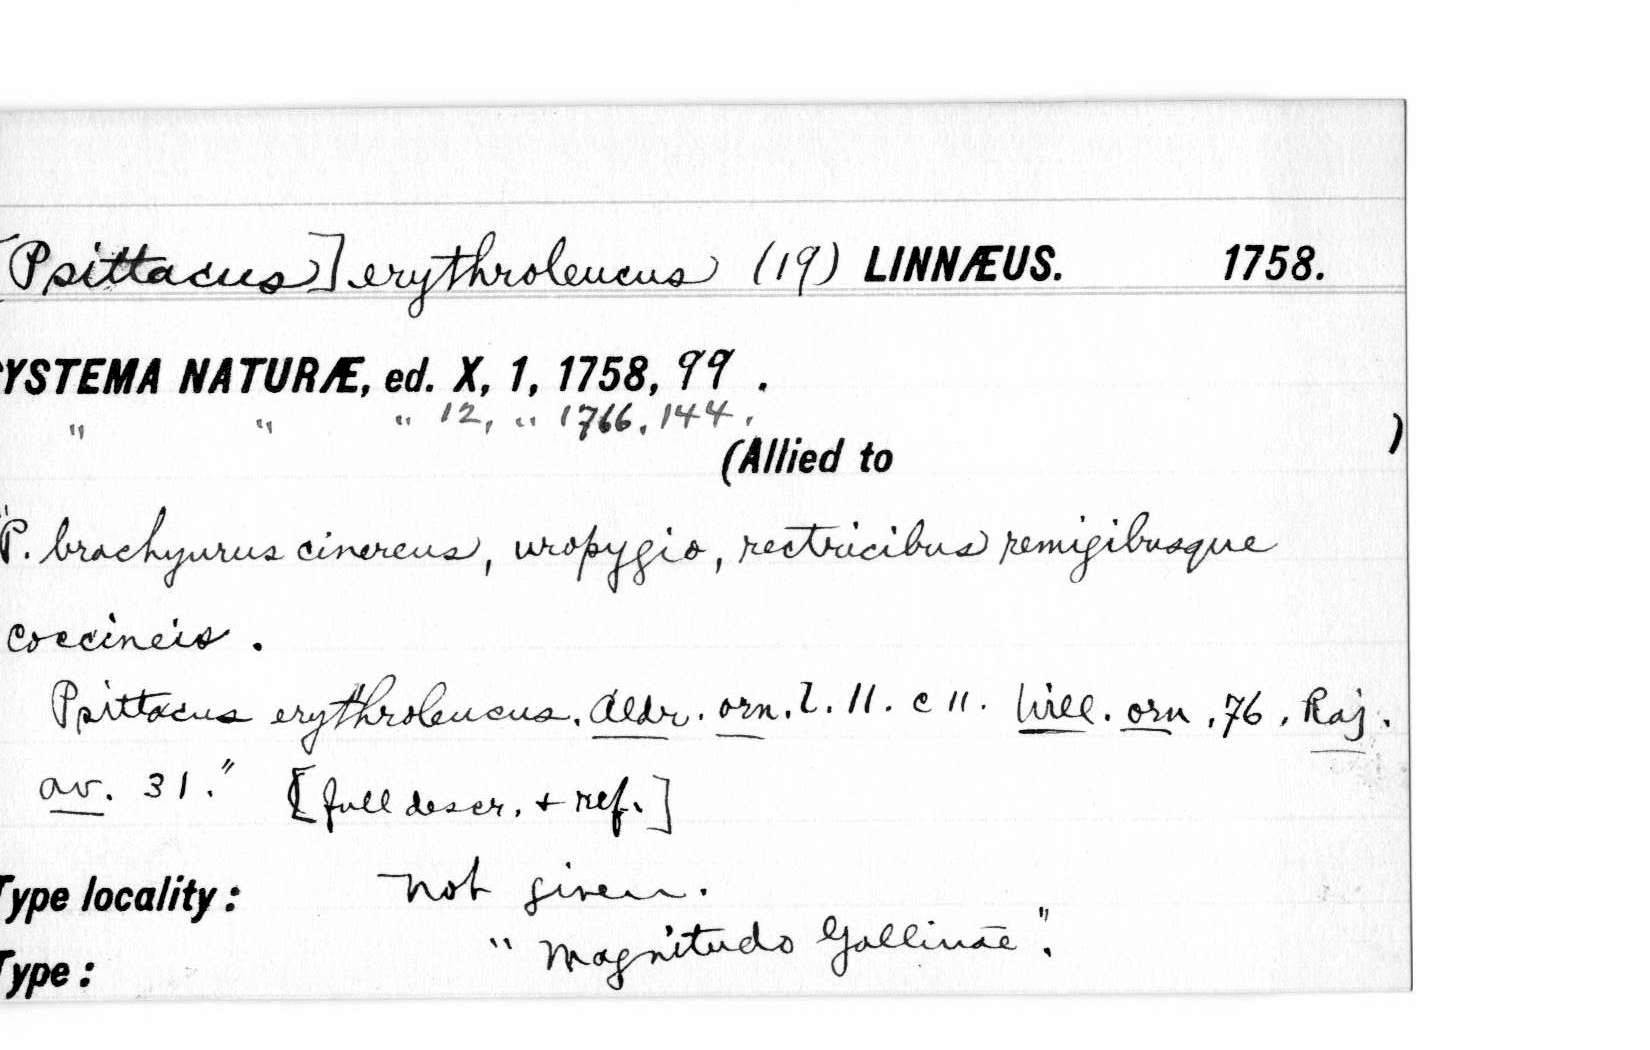 [Psittacus] erythroleucus (19) LINNÆUS. 1758.
YSTEMA NATURÆ, ed. X, 1, 1758, 99.
" " " 12, " 1766, 144.
(Allied to )
"P. brachyurus cinereus, uropygio, rectricibus remigibusque
coccineis.
Psittacus erythroleucus. Aldr. orn. l. 11. c 11. Will. orn. 76. Raj.
av. 31." [full descr. + ref.]
Type locality: not given.
"Magnitudo Gallinae".
Type: